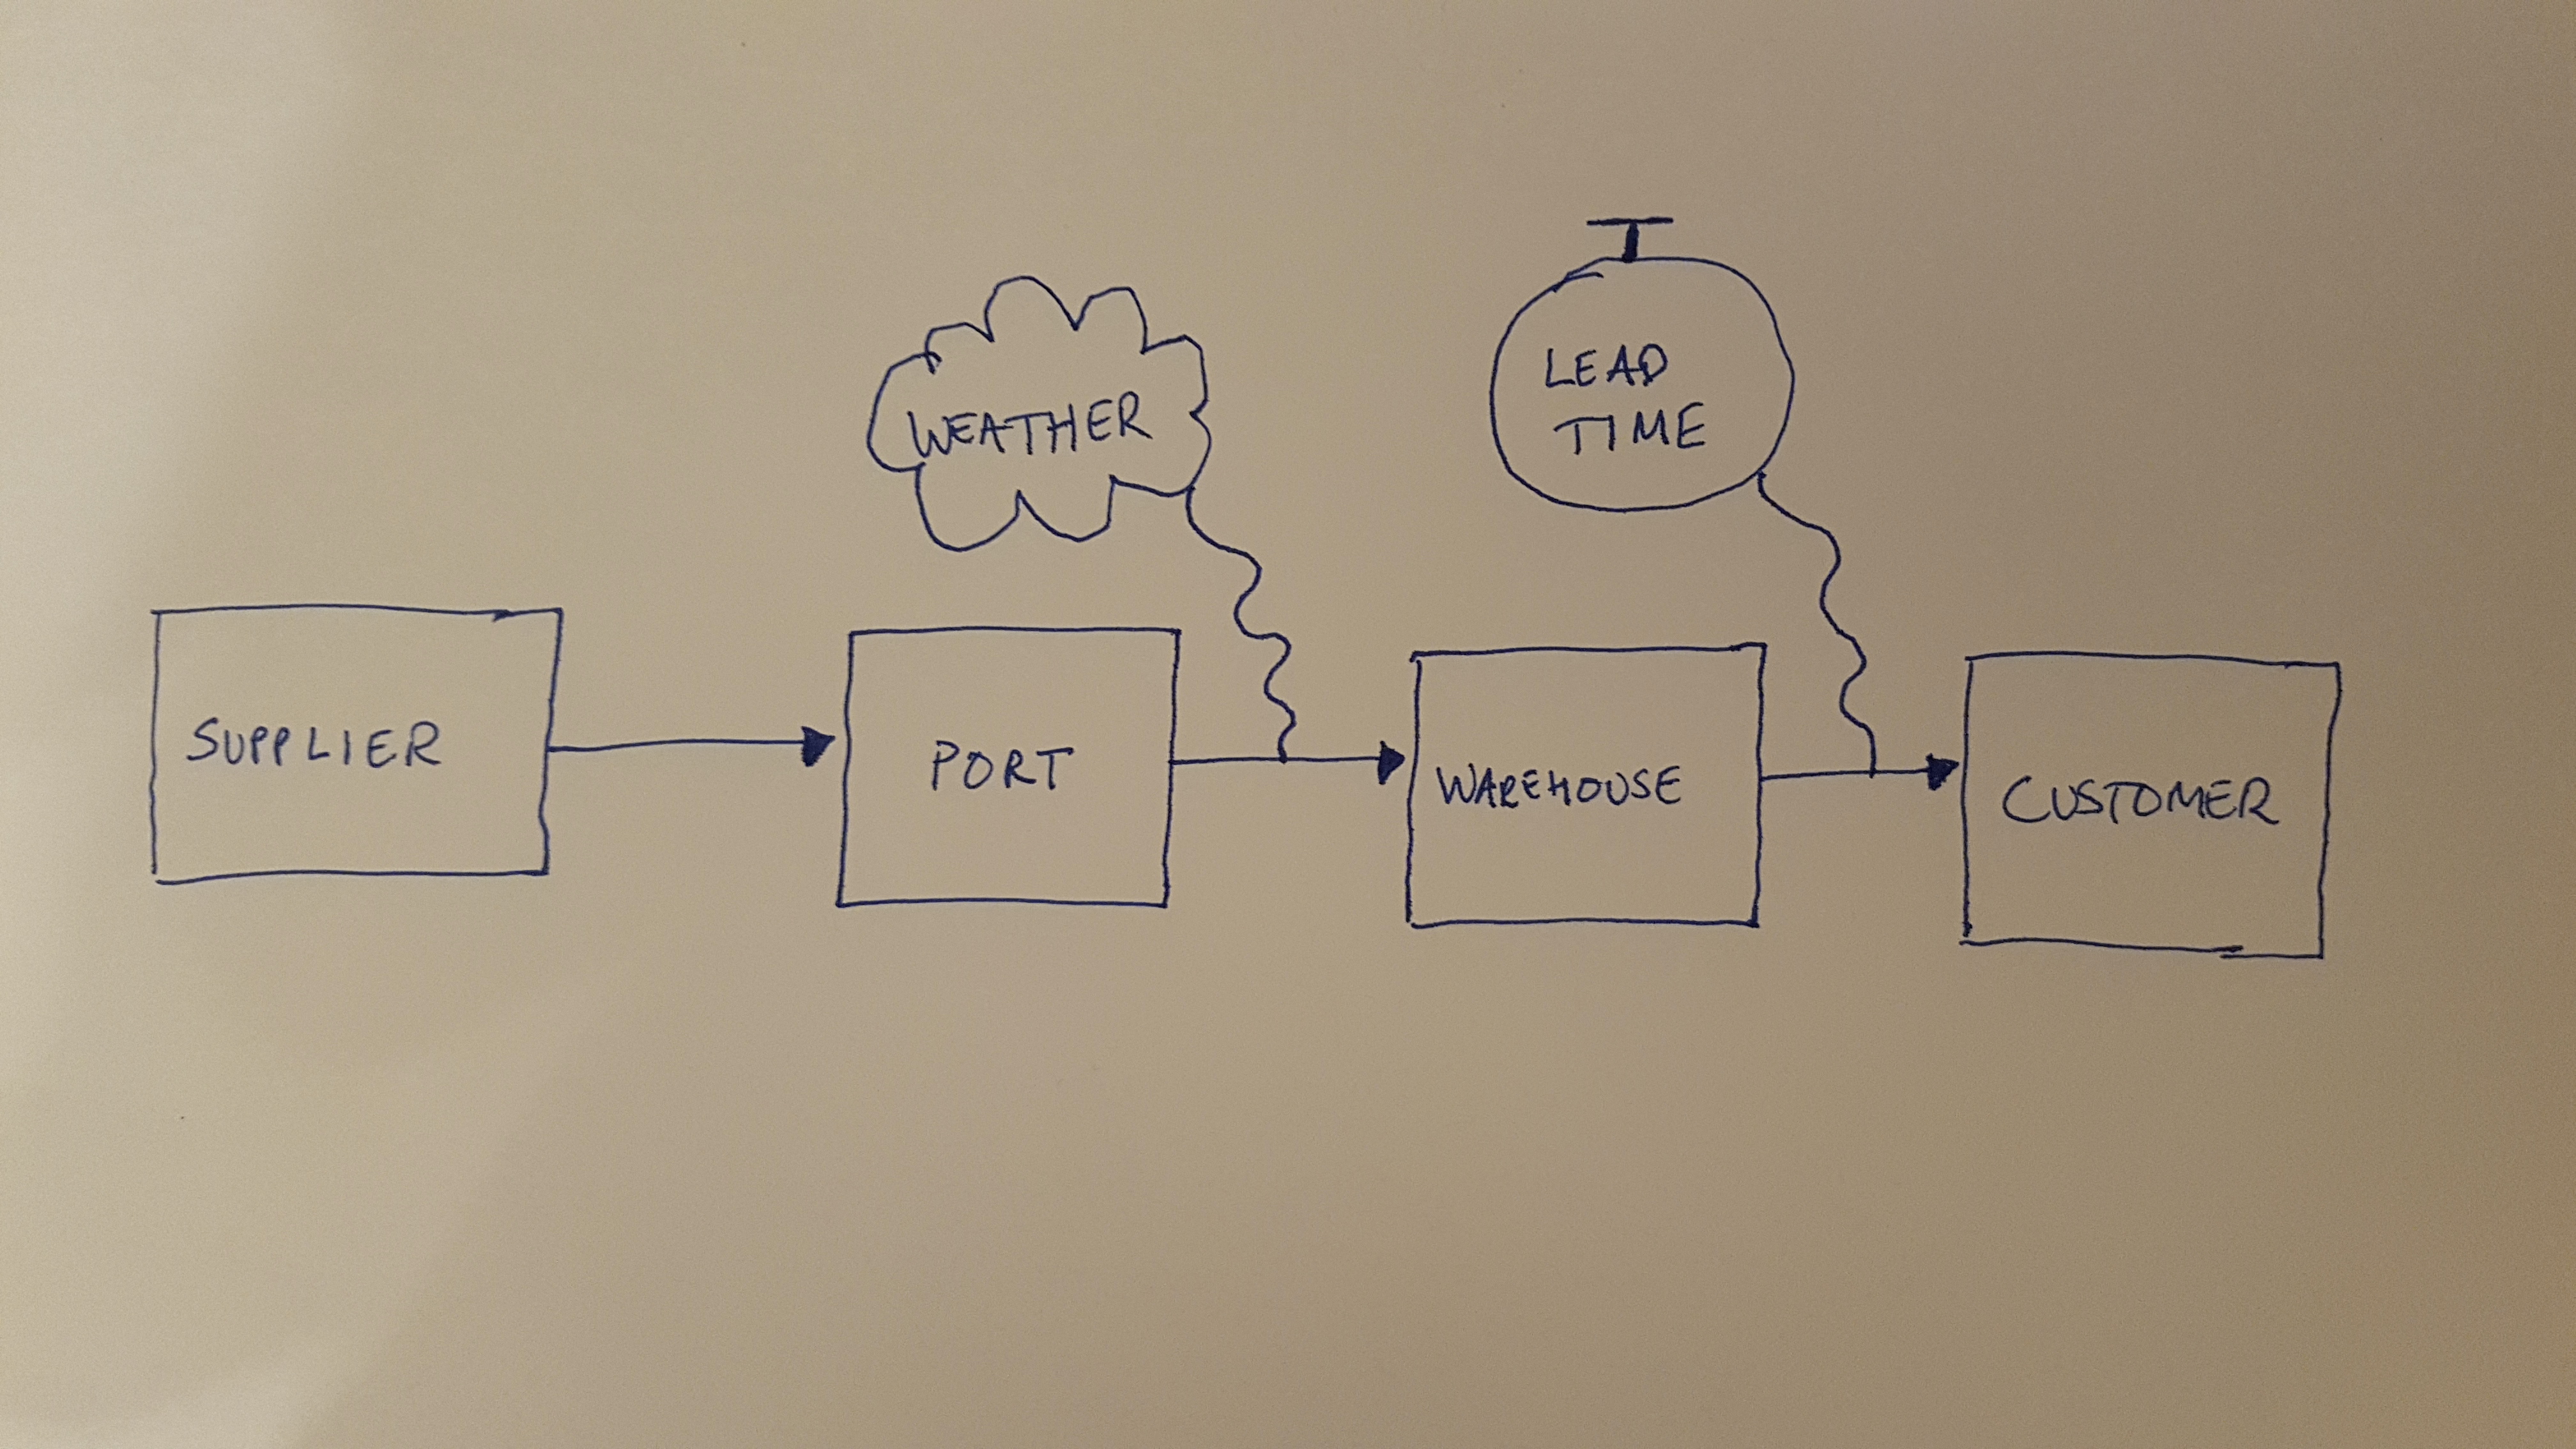 WEATHER
LEAD
TIME
SUPPLIER
PORT
WAREHOUSE
CUSTOMER